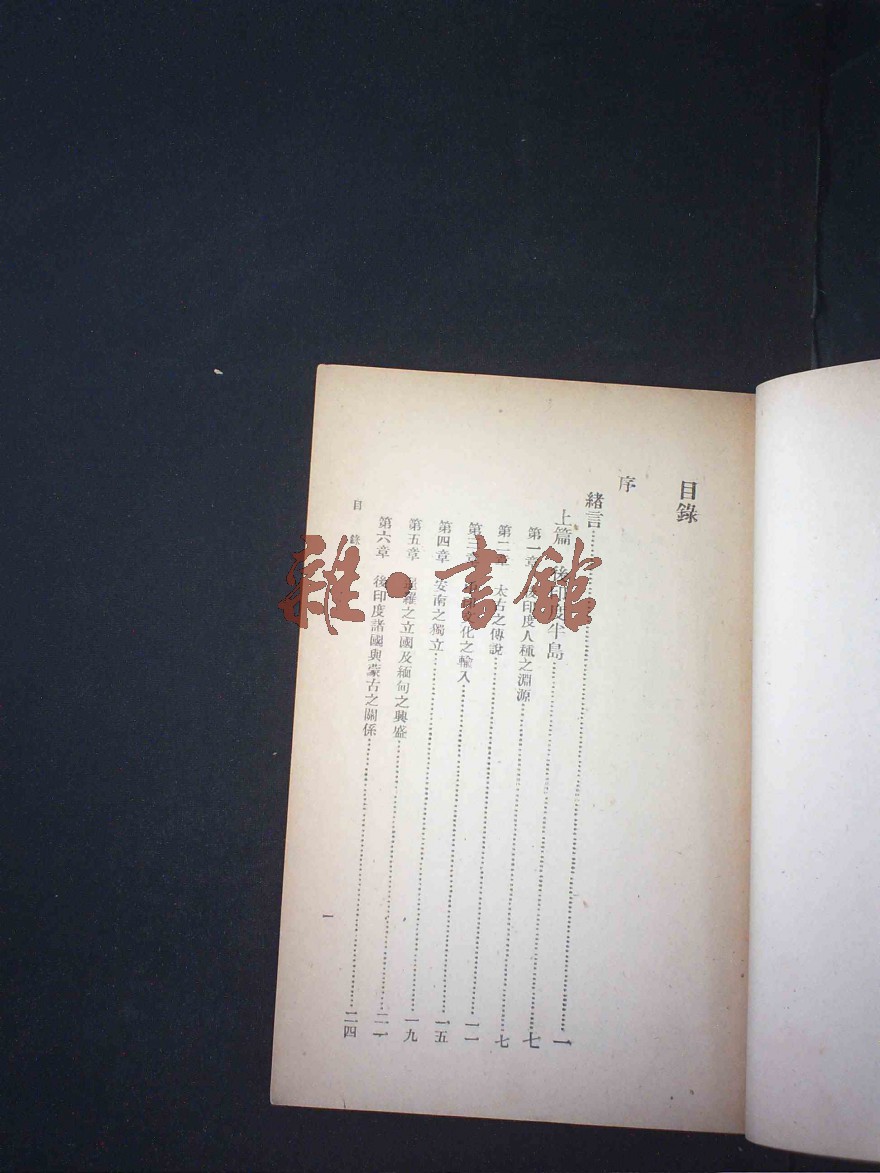 目錄
序
緒言……一
上篇 後印度半島……七
第一章 印度人種之淵源……七
第二章 太古之傳說……一一
第三章 文化之輸入……一五
第四章 安南之獨立……一九
第五章 暹羅之立國及緬甸之興盛……二一
第六章 後印度諸國與蒙古之關係……二四
目錄
一
雜·書館